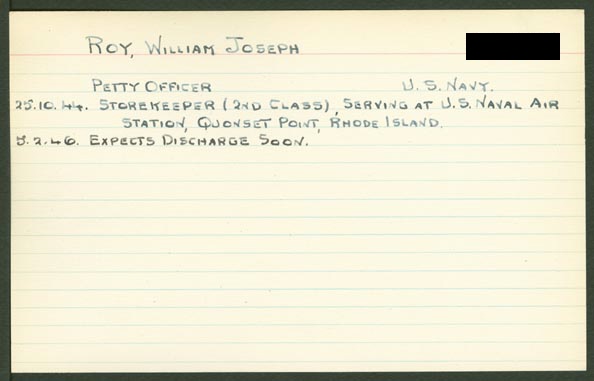 ROY, WILLIAM JOSEPH
PETTY OFFICER U.S. NAVY.
25.10.44. STOREKEEPER (2ND CLASS), SERVING AT U.S. NAVAL AIR
STATION, QUONSET POINT, RHODE ISLAND.
5.2.46. EXPECTS DISCHARGE SOON.